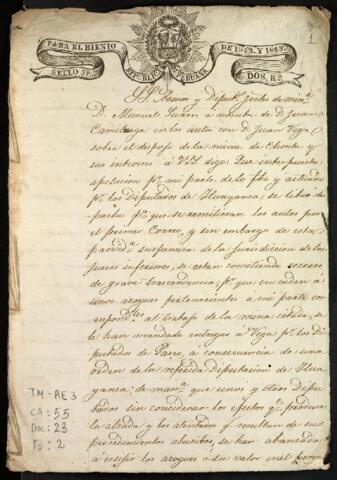 PARA EL BIENIO
DE 1842. Y 1843.
SELLO 3º
REPUBLICA PERUANA
DOS. Rs.
1
S.S. Admor y Diput. juntos de min.ª
D. Manuel Suares á nombre de D. Juan
en los autos con D. Juan Vega
sobre el despojo de la mina de Chonta y
sus intereses á VSS. digo: Que interpuesta
apelacion pr. mi parte de lo fho y actuado
pr. los Diputados de Huayanca, se libró
pª. que se remitieran los autos por
el primer Correo, y sin embargo de esta
provid.ª suspensiva de la jurisdiccion de los
Jueces inferiores, se estan cometiendo escesos
de grave trascendencia; pr. que en órden á
unos azogues pertenecientes á mi parte
correspond.tes al trabajo de la mina citada, se
le han mandado entregar á Vega pr. los Di-
putados de Pasco, á consecuencia de una
órden de la referida Diputacion de Hua-
yanca; de man.ª que unos y otros Dipu-
tados sin considerar los efectos qe. produce
la alzada y los atentados qe. resultan de sus
procedimientos abusivos, se han abanzado
á exijir los azogues ó su valor en el
TM-AE 3
CA: 55
DOC: 23
FS: 2